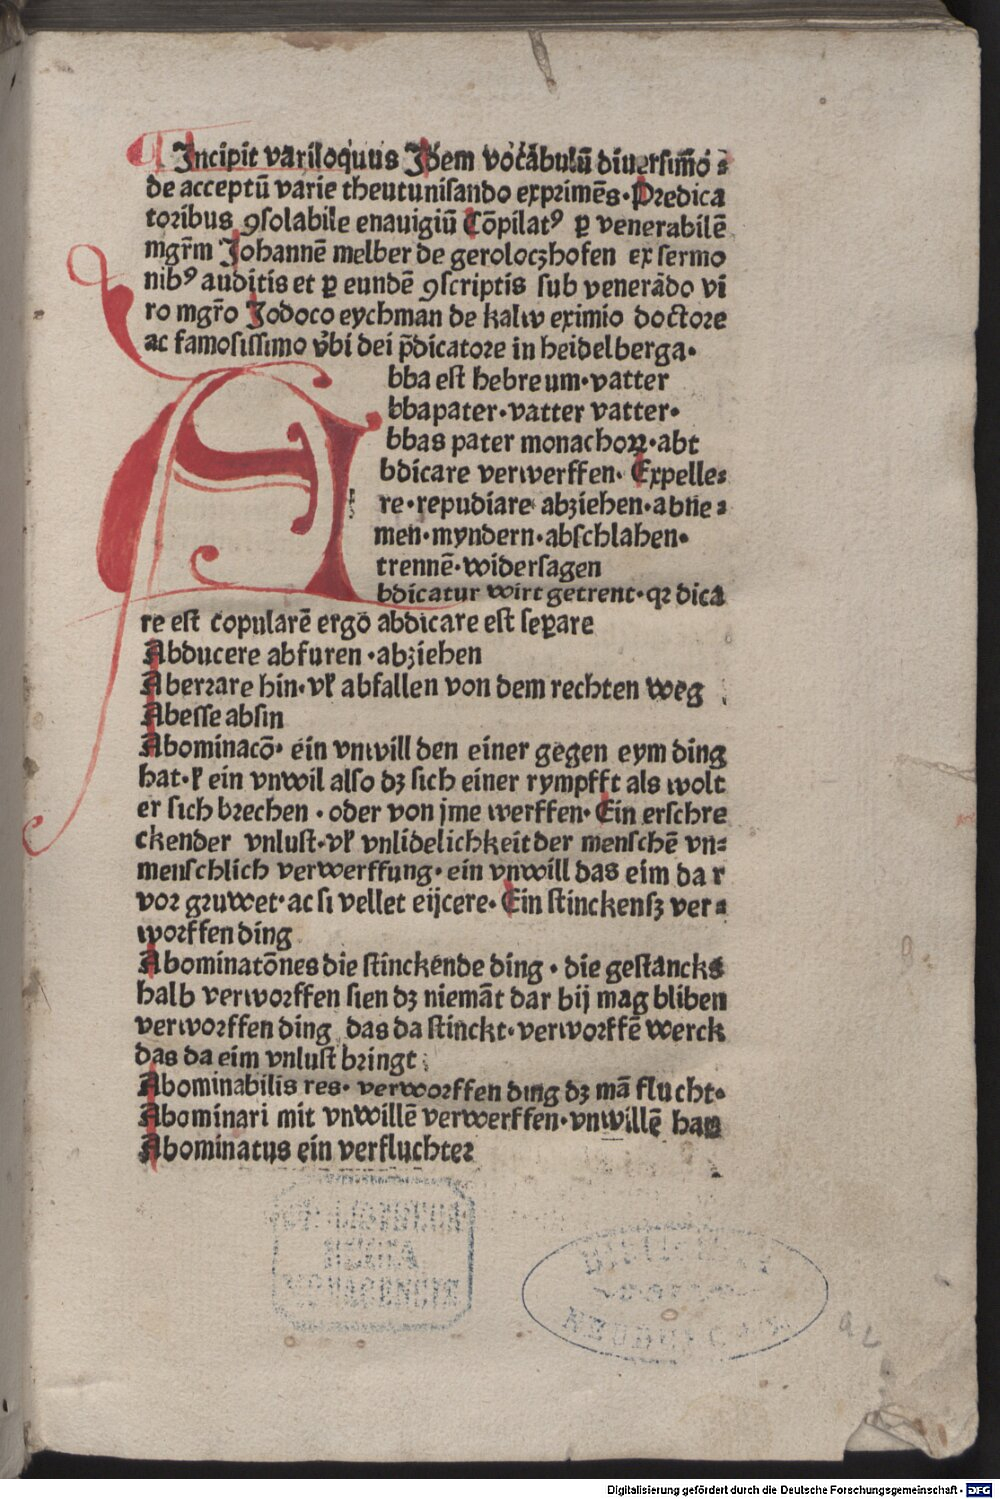 ¶ Incipit variloquus Idem vocabulū diuersim̄o⸗
de acceptū varie theutunisando exprimēs·Predica
toribus ꝯsolabile enauigiū Cōpilatꝰ ꝑ venerabilē
mgr̄m Johannē melber de geroloczhofen ex sermo
nibꝰ auditis et ꝑ eundē ꝯscriptis sub venerādo vi
ro mgr̄o Jodoco eychman de kalw eximio doctore
ac famosissimo v̄bi dei p̄dicatore in heidelberga·
Abba est hebreum·vatter
bbapater·vatter vatter·
bbas pater monachoꝝ·abt
bdicare verwerffen· Expelle⸗
re·repudiare abziehen·abne⸗
men·myndern·abschlahen·
trennē·widersagen
bdicatur wirt getrent·qꝛ dica
re est copularē ergo abdicare est seꝑare
Abducere abfuren·abziehen
Aberrare hin·vl̄ abfallen von dem rechten weg
Abesse absin
Abominacō· ein vnwill den einer gegen eym ding
hat·l̄ ein vnwil also dz sich einer rympfft als wolt
er sich brechen·oder von jme werffen·Ein erschre
ckender vnlust·vl̄ vnlidelichkeit der menschē vn⸗
menschlich verwerffung·ein vnwill das eim dar
vor gruwet·ac si vellet eijcere·Ein stinckensz ver⸗
worffen ding
Abominatōnes die stinckende ding·die gestancks
halb verworffen sien dz niemāt dar bij mag bliben
verworffen ding das da stinckt·verworffē werck
das da eim vnlust bringt
Abominabilis res·verworffen ding dz mā flucht·
Abominari mit vnwillē verwerffen·vnwillē han
Abominatus ein verfluchter
REGIA
MONACENSIS
Digitalisierung gefördert durch die Deutsche Forschungsgemeinschaft - DFG